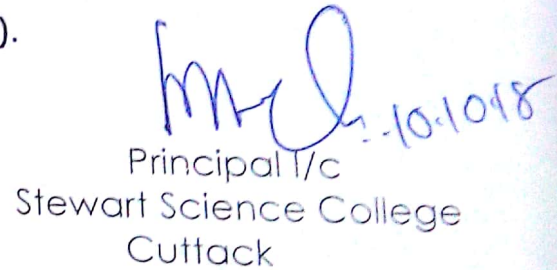 ).
10.10.18
Principal I/c
Stewart Science College
Cuttack